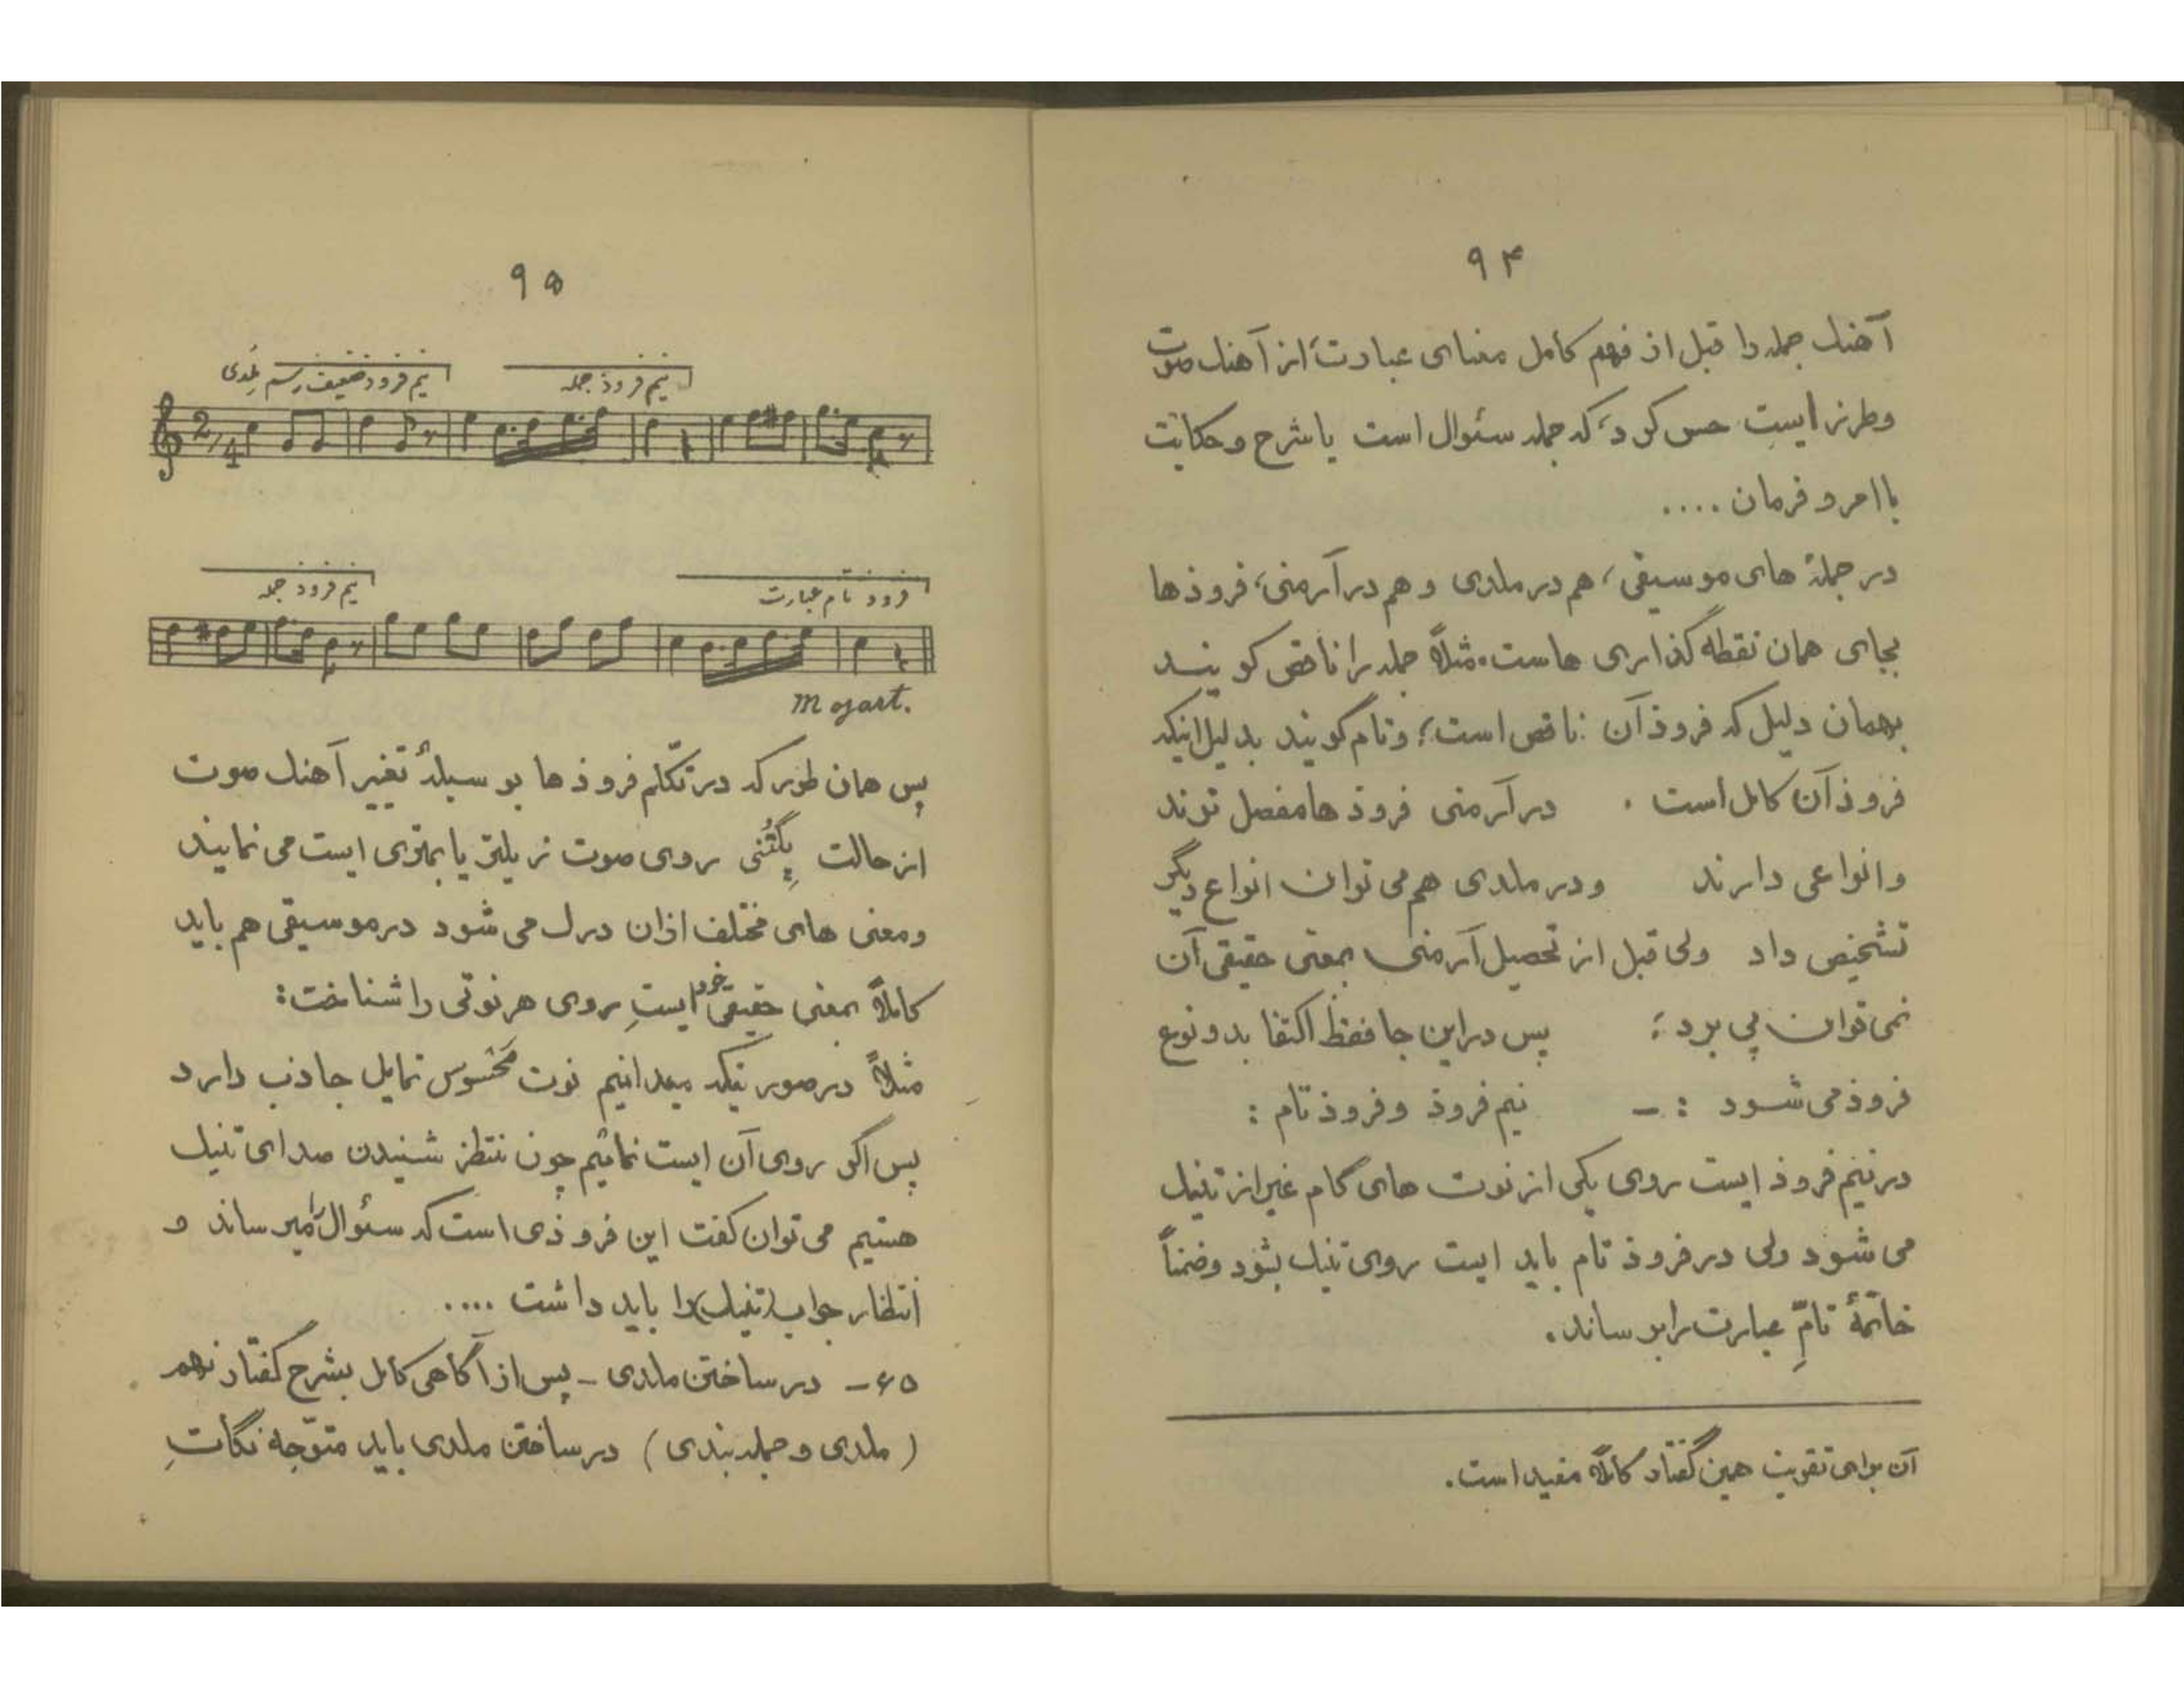 ۹۴
آهنك جمله را قبل از فهم كامل معنای عبارت، از آهنك صوت
وطرز ایست حس کرد، که جمله سئوال است یا شرح و حکایت
یا امر و فرمان ....
در جملهٔ های موسیقی، هم در ملدی و هم در آرمنی، فروذ ها
بجای همان نقطه گذاری هاست. مثلاً جمله را ناقص گویند
بهمان دلیل که فروذ آن ناقص است؛ و تام گویند بدلیل اینکه
فروذ آن کامل است . در آرمنی فروذ ها مفصل ترند
و انواعی دارند و در ملدی هم می توان انواع دیگر
تشخیص داد ولی قبل از تحصیل آرمنی بمعنی حقیقی آن
نمی توان پی برد ؛ پس در این جا فقط اکتفا بدو نوع
فروذ می شود :ـ نیم فروذ و فروذ تام :
در نیم فروذ ایست روی یکی از نوت های گام غیر از تنیك
می شود ولی در فروذ تام باید ایست روی تنیك بشود و ضمناً
خاتمهٔ تامِّ عبارت را برساند.
آن برای تقویت همین گفتار کاملاً مفید است.
۹۵
نیم فروذ ضعیف رسم ملدی نیم فروذ جمله
2/4
نیم فروذ جمله فروذ تام عبارت
Mozart.
پس همان طور که در تکلّم فروذ ها بوسیلهٔ تغییر آهنك صوت
از حالت یِکتُنی روی صوت زیرتر یا بم‌تری ایست می نمایند
و معنی های مختلف از آن درك می شود در موسیقی هم باید
کاملاً بمعنی حقیقی خود ایستِ روی هر نوتی را شناخت:
مثلاً در صورتیکه میدانیم نوت مَحْسوس تمایل جاذب دارد
پس اگر روی آن ایست نمائیم چون منتظر شنیدن صدای تنیك
هستیم می توان گفت این فروذی است که سئوال را میرساند و
انتظار جواب (تنیك) را باید داشت ....
۶۵ـ در ساختن ملدی ـ پس از آگاهی کامل بشرح گفتار نهم
( ملدی و جمله بندی ) در ساختن ملدی باید متوّجه نکاتِ